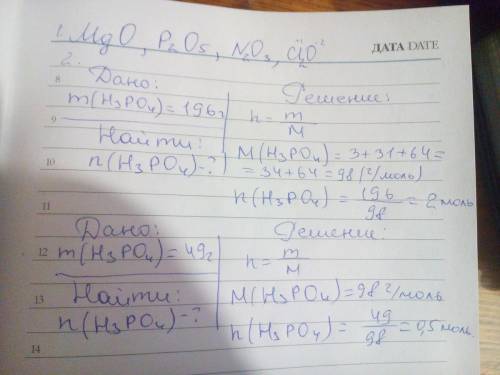 1. MgO, P₂O₅, N₂O₃, Cl₂O
ДАТА DATE
2.
8
Дано:
m(H₃PO₄) = 196 г
9
Найти:
10
n(H₃PO₄) - ?
Решение:
n = m/M
M(H₃PO₄) = 3+31+64=
= 34+64 = 98 (г/моль)
n(H₃PO₄) = 196/98 = 2 моль
11
Дано:
12
m(H₃PO₄) = 49 г
13
Найти:
n(H₃PO₄) - ?
14
Решение:
n = m/M
M(H₃PO₄) = 98 г/моль
n(H₃PO₄) = 49/98 = 0,5 моль.